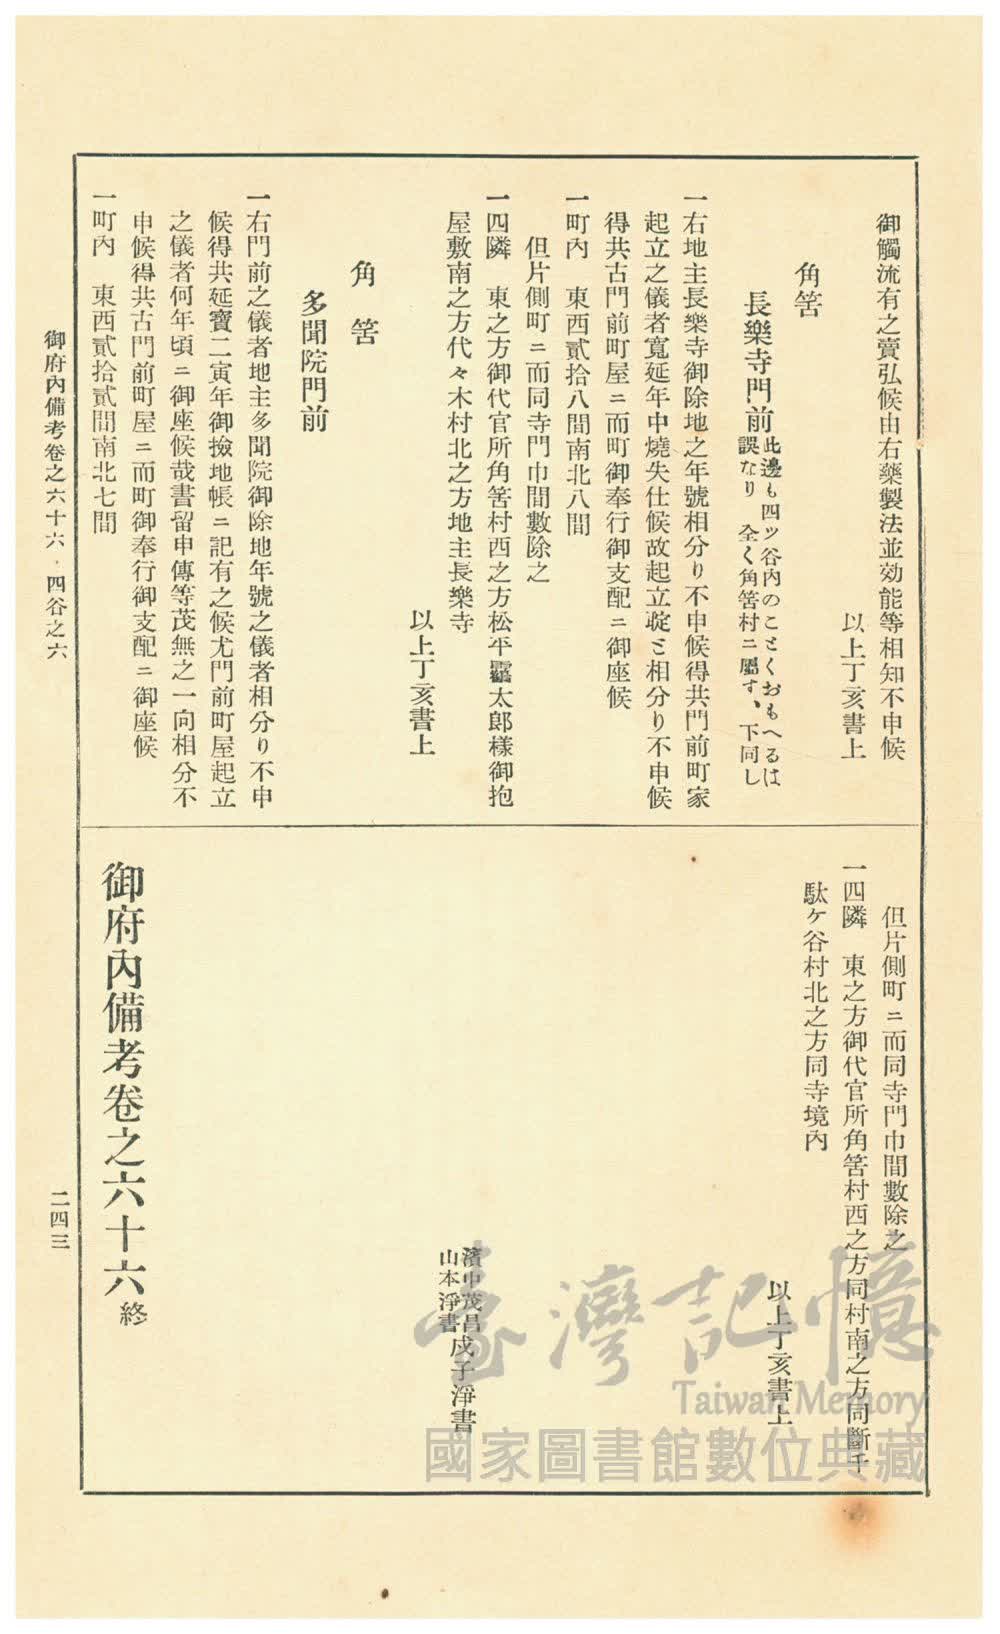 御觸流有之賣弘候由右藥製法並効能等相知不申候
以上丁亥書上
角筈
長樂寺門前 此邊も四ッ谷內のことくおもへるは
誤なり 全く角筈村ニ屬す、下同し
一右地主長樂寺御除地之年號相分り不申候得共門前町家
起立之儀者寬延年中燒失仕候故起立聢と相分り不申候
得共古門前町屋ニ而町御奉行御支配ニ御座候
一町內 東西貳拾八間南北八間
但片側町ニ而同寺門巾間數除之
一四隣 東之方御代官所角筈村西之方松平靍太郎樣御抱
屋敷南之方代々木村北之方地主長樂寺
以上丁亥書上
角筈
多聞院門前
一右門前之儀者地主多聞院御除地年號之儀者相分り不申
候得共延寶二寅年御撿地帳ニ記有之候尤門前町屋起立
之儀者何年頃ニ御座候哉書留申傳等茂無之一向相分不
申候得共古門前町屋ニ而町御奉行御支配ニ御座候
一町內 東西貳拾貳間南北七間
但片側町ニ而同寺門巾間數除之
一四隣 東之方御代官所角筈村西之方同村南之方同斷千
駄ケ谷村北之方同寺境內
以上丁亥書上
濱中茂昌戍子淨書
山本淨書
御府內備考卷之六十六終
御府內備考卷之六十六・四谷之六
二四三
臺灣記憶
Taiwan Memory
國家圖書館數位典藏